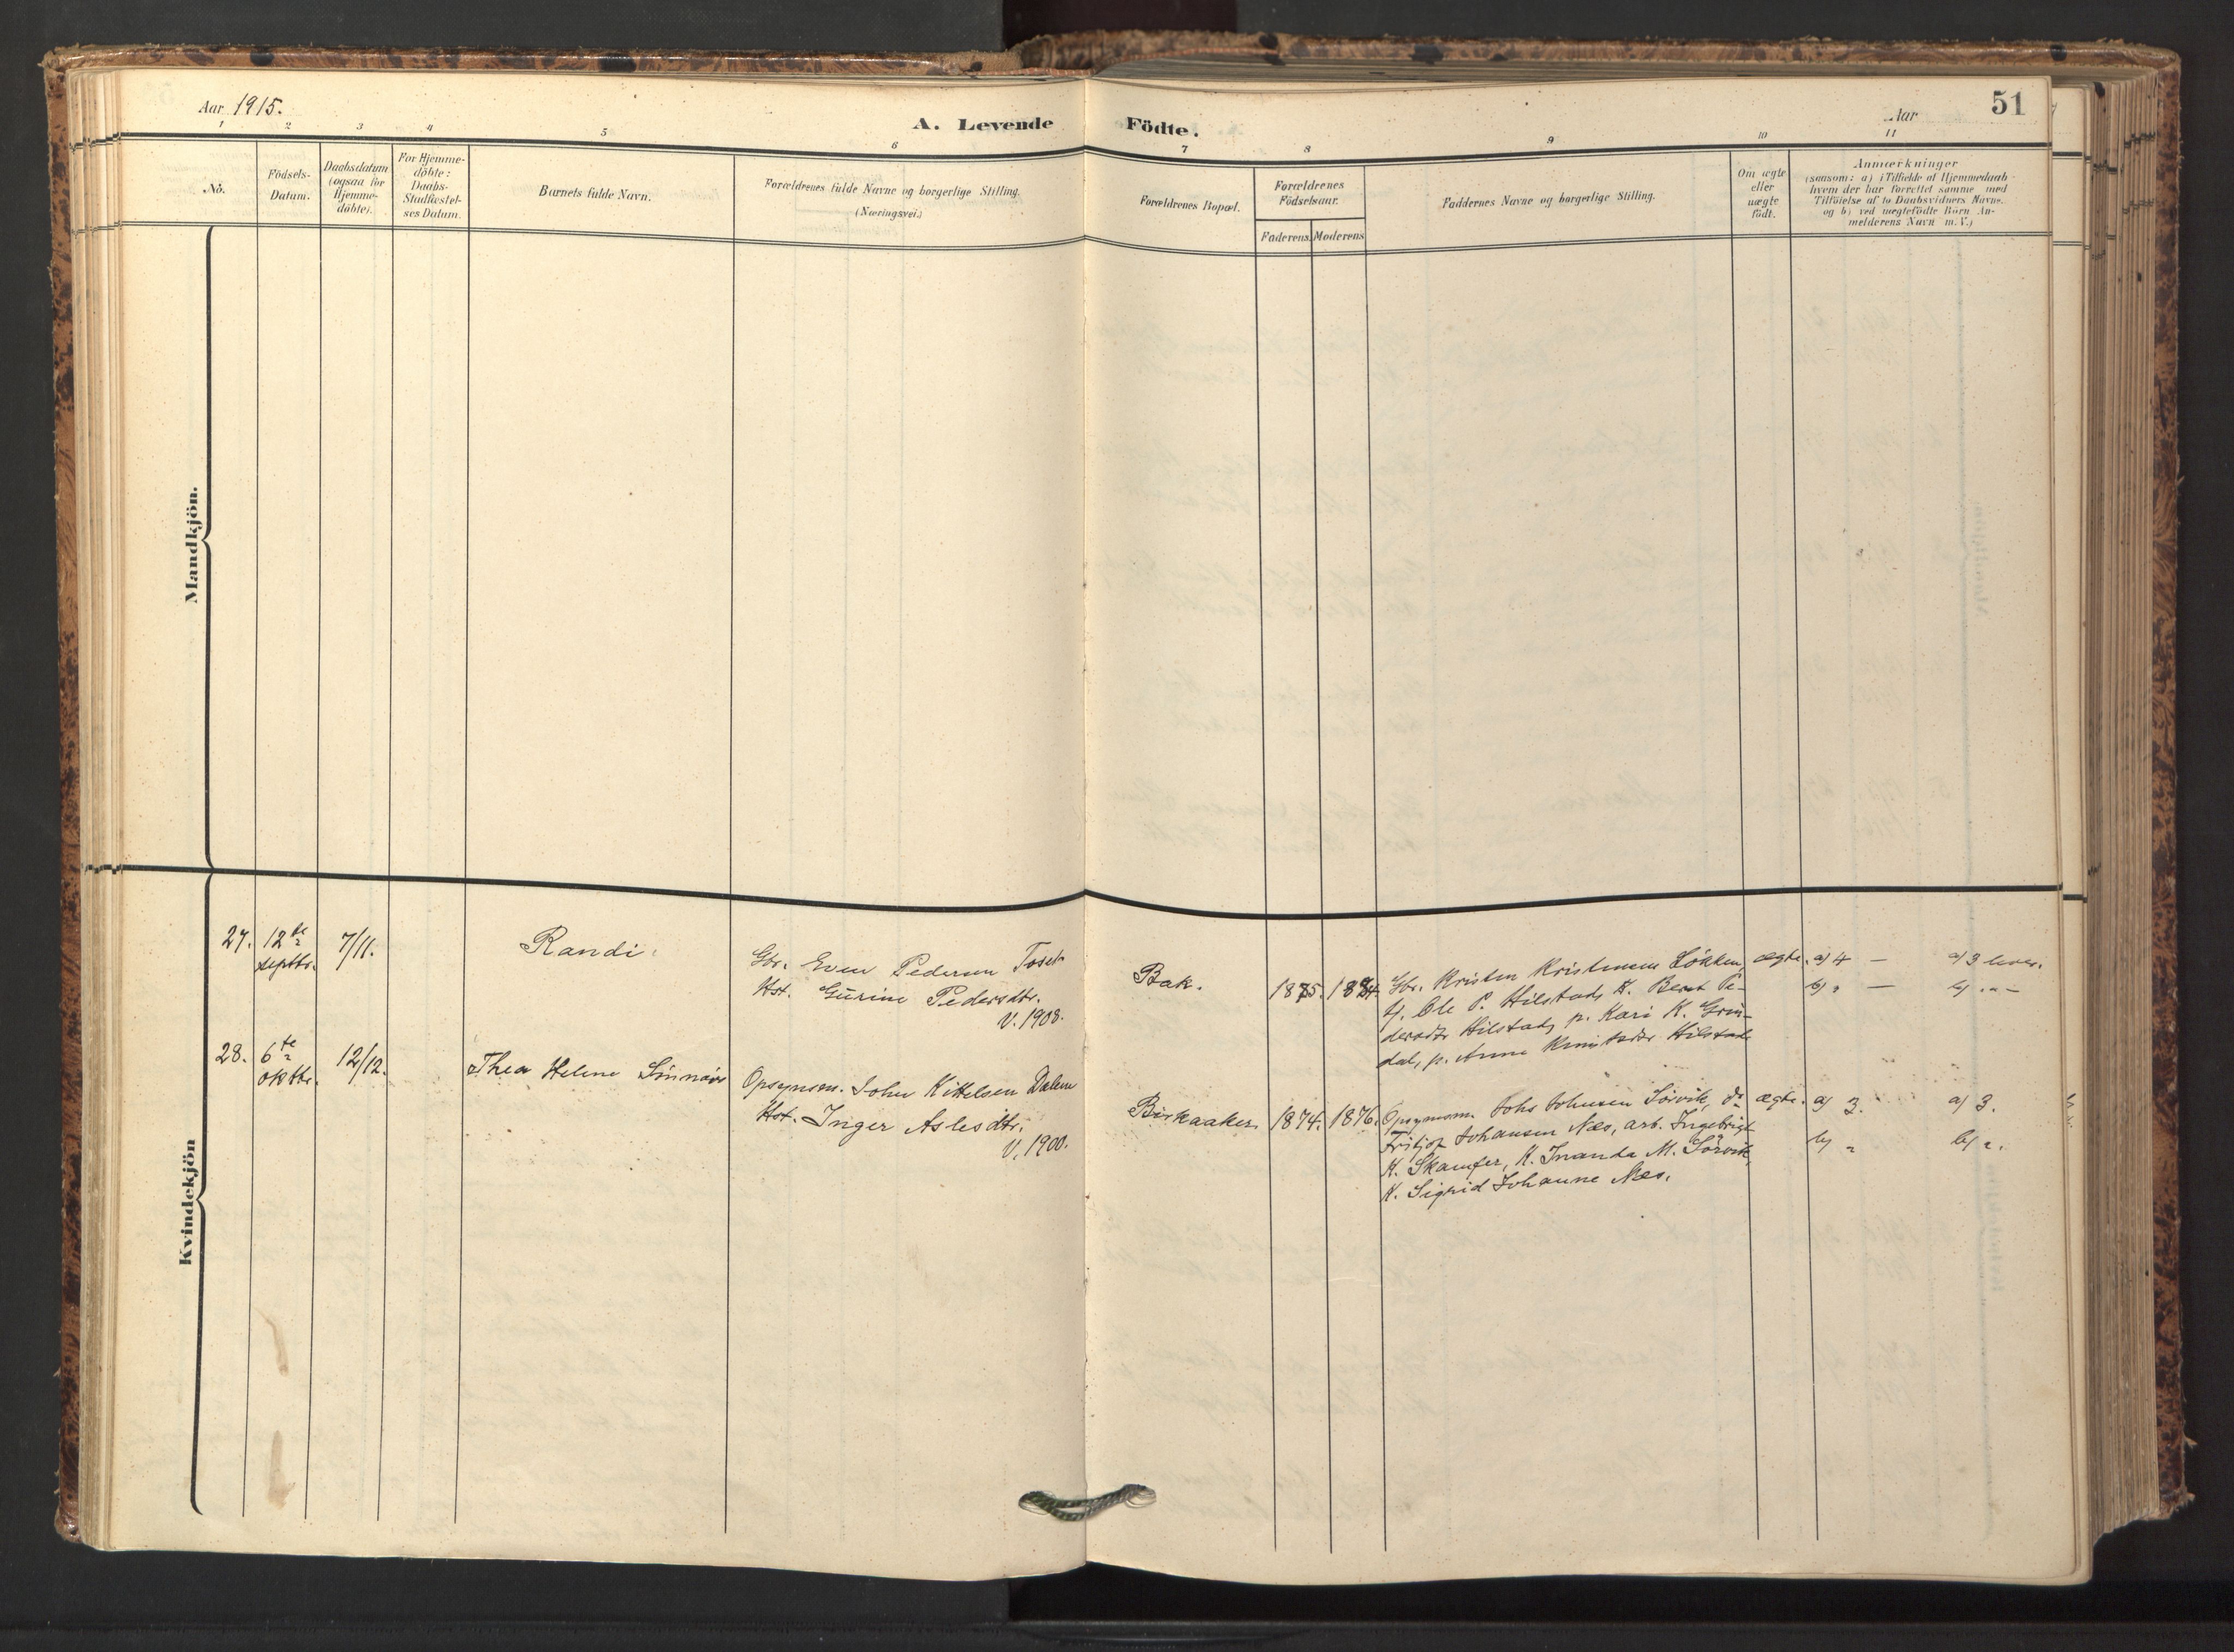 Aar 1915.
A. Levende Födte.
Aar
51
1 2 3 4 5 6 7 8 9 10 11
No.
Födsels-
Datum.
Daabsdatum
(ogsaa for
Hjemme-
döbte).
For Hjemme-
döbte:
Daabs-
Stadfæstel-
ses Datum.
Barnets fulde Navn.
Forældrenes fulde Navne og borgerlige Stilling.
(Næringsvei.)
Forældrenes Bopæl.
Forældrenes
Födselsaar.
Faderens. Moderens
Faddernes Navne og borgerlige Stilling.
Om ægte
eller
uægte
födt.
Anmærkninger
(saasom: a) i Tilfælde af Hjemmedaab
hvem der har forrettet samme med
Tilföielse af to Daabsvidners Navne.
og b) ved uægtefödte Börn An-
melderens Navn m. V.)
Mandkjön.
Kvindekjön
27.
12te
septbr.
7/11.
Randi.
Gbr. Even Pedersen Toset
Hst. Gurine Pedersdtr.
V. 1908.
Bak.
1875. 1884.
Gbr. Kristen Kristensen Lökken,
G. Ole P. Hilstad, K. Berit Pe-
dersdtr Hilstad, p. Kari K. Grin-
dal, p. Anne Hilstad
ægte.
a) 4 — a) 3 lever.
b) " — b) . " –
28.
6te
oktbr.
12/12.
Thea Helene Sinnöve
Opsynsm. John Kittelsen Dalum
Hst. Inger Aslesdtr.
V. 1900.
Birkaaker.
1874. 1876.
Opsynsm. Johs Johnsen Sörvik, do
Fritjof Johansen Næs, arb. Ingebrigt
K. Skamfer, K. Inanda M. Sörvik,
K. Sigrid Johanne Næs.
ægte.
a) 3. a) 3.
b) " b) ".